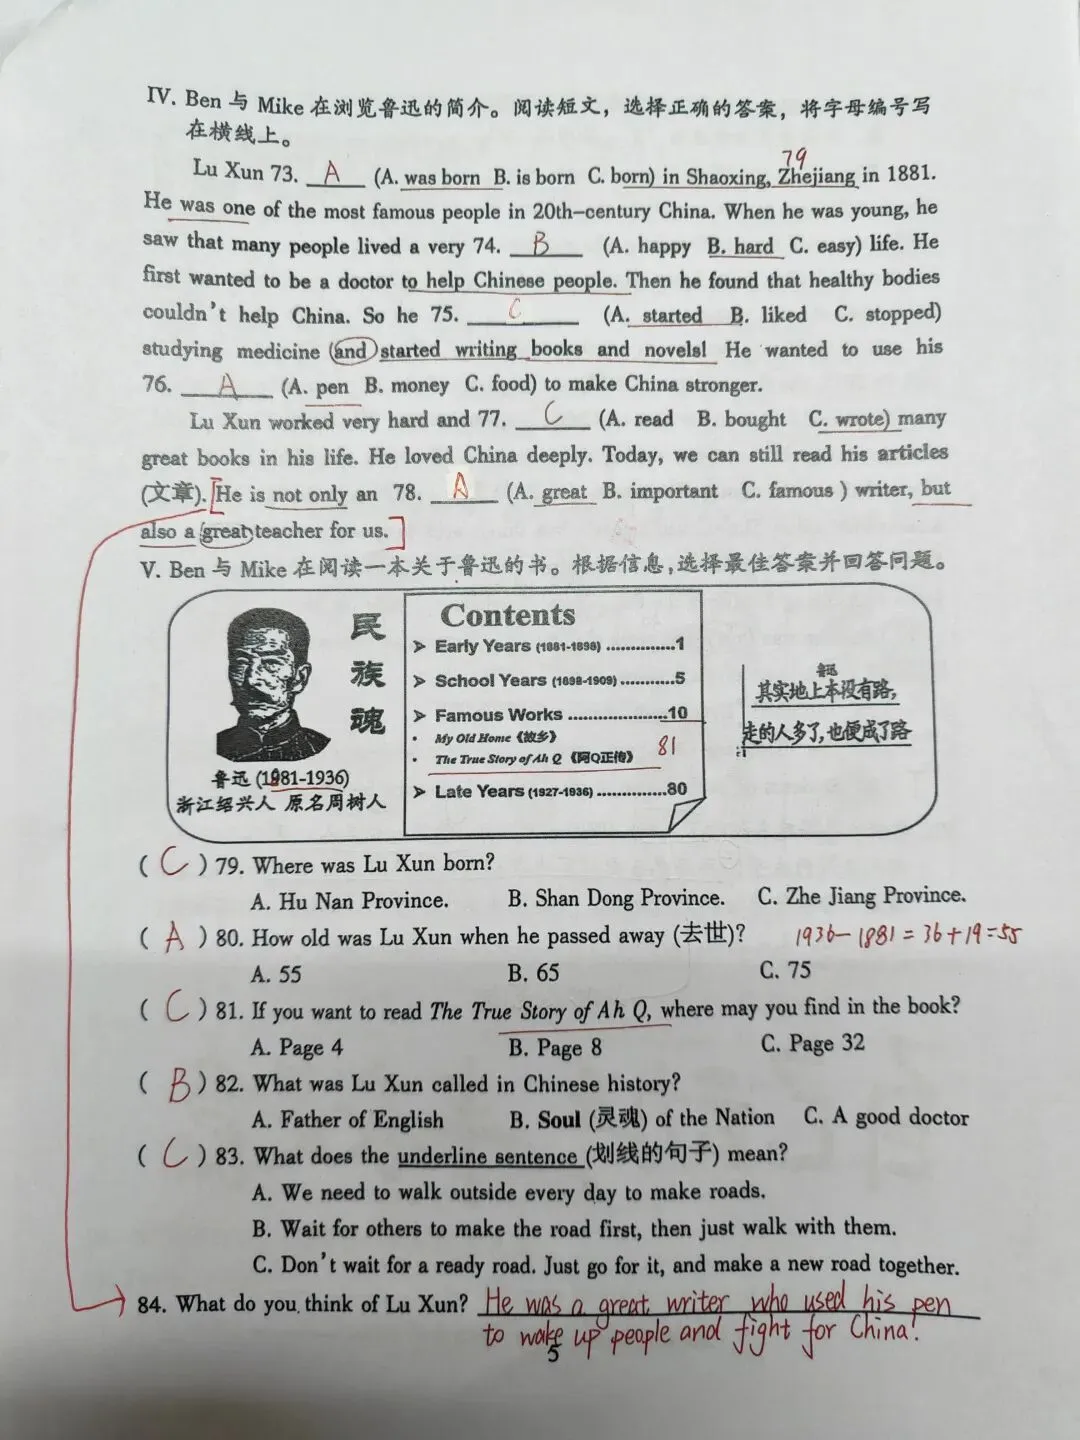 IV. Ben 与 Mike 在浏览鲁迅的简介。阅读短文，选择正确的答案，将字母编号写
在横线上。
79
Lu Xun 73. A (A. was born B. is born C. born) in Shaoxing, Zhejiang in 1881.
He was one of the most famous people in 20th-century China. When he was young, he
saw that many people lived a very 74. B (A. happy B. hard C. easy) life. He
first wanted to be a doctor to help Chinese people. Then he found that healthy bodies
couldn't help China. So he 75. C (A. started B. liked C. stopped)
studying medicine and started writing books and novels! He wanted to use his
76. A (A. pen B. money C. food) to make China stronger.
Lu Xun worked very hard and 77. C (A. read B. bought C. wrote) many
great books in his life. He loved China deeply. Today, we can still read his articles
(文章). [He is not only an 78. A (A. great B. important C. famous ) writer, but
also a great teacher for us.]
V. Ben 与 Mike 在阅读一本关于鲁迅的书。根据信息,选择最佳答案并回答问题。
民族魂
鲁迅 (1881-1936)
浙江绍兴人 原名周树人
Contents
➢ Early Years (1881-1898) ...............1
➢ School Years (1898-1909) ...........5
➢ Famous Works ......................10
• My Old Home《故乡》
• The True Story of Ah Q《阿Q正传》 81
➢ Late Years (1927-1936) ...............80
鲁迅
其实地上本没有路,
走的人多了,也便成了路
( C ) 79. Where was Lu Xun born?
A. Hu Nan Province. B. Shan Dong Province. C. Zhe Jiang Province.
( A ) 80. How old was Lu Xun when he passed away (去世)? 1936-1881=36+19=55
A. 55 B. 65 C. 75
( C ) 81. If you want to read The True Story of Ah Q, where may you find in the book?
A. Page 4 B. Page 8 C. Page 32
( B ) 82. What was Lu Xun called in Chinese history?
A. Father of English B. Soul (灵魂) of the Nation C. A good doctor
( C ) 83. What does the underline sentence (划线的句子) mean?
A. We need to walk outside every day to make roads.
B. Wait for others to make the road first, then just walk with them.
C. Don't wait for a ready road. Just go for it, and make a new road together.
84. What do you think of Lu Xun? He was a great writer who used his pen
to wake up people and fight for China!
5